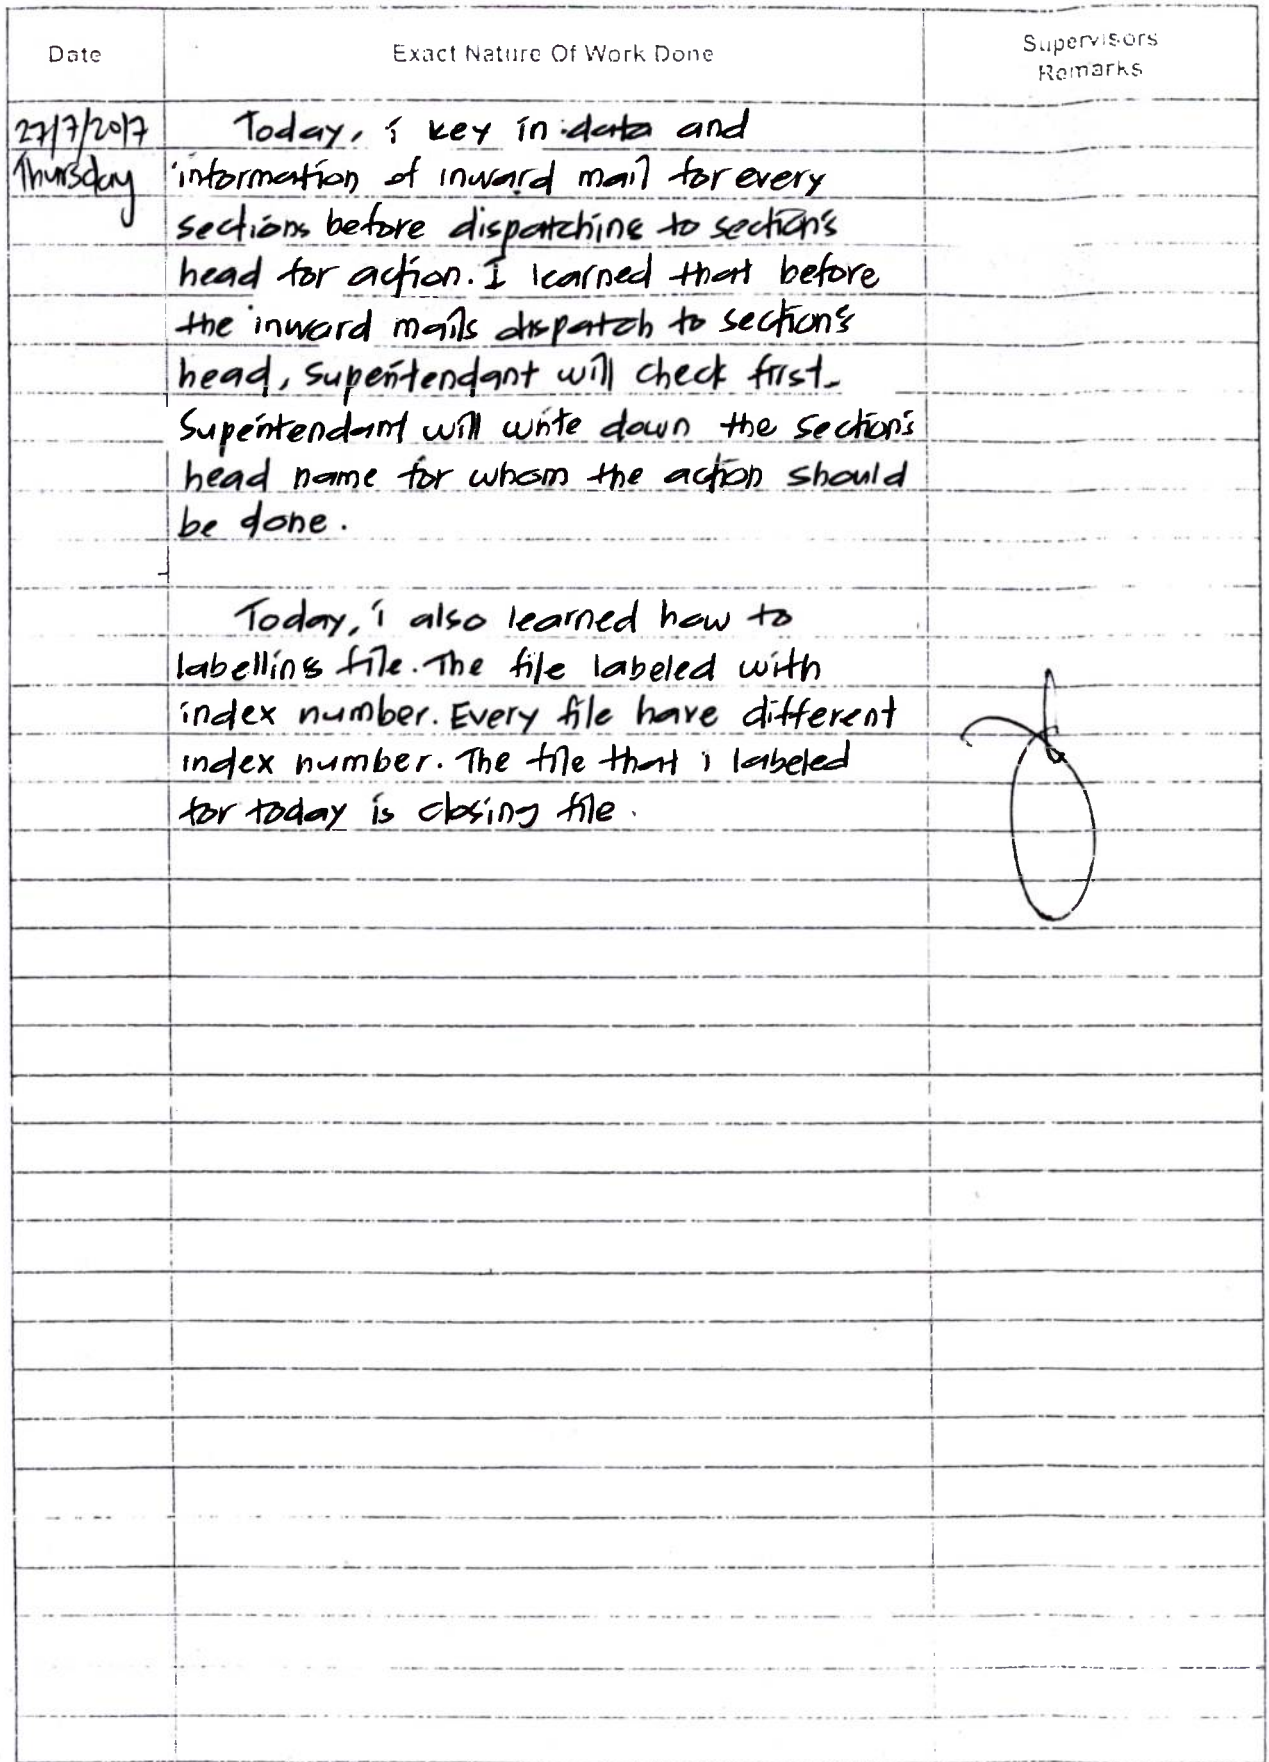 Date Exact Nature Of Work Done Supervisors
Remarks
27/7/2017 Today, i key in data and
Thursday information of inward mail for every
sections before dispatching to section's
head for action. I learned that before
the inward mails dispatch to section's
head, Superitendant will check first.
Superitendant will write down the section's
head name for whom the action should
be done.
Today, i also learned how to
labelling file. The file labeled with
index number. Every file have different
index number. The file that i labeled
for today is closing file.